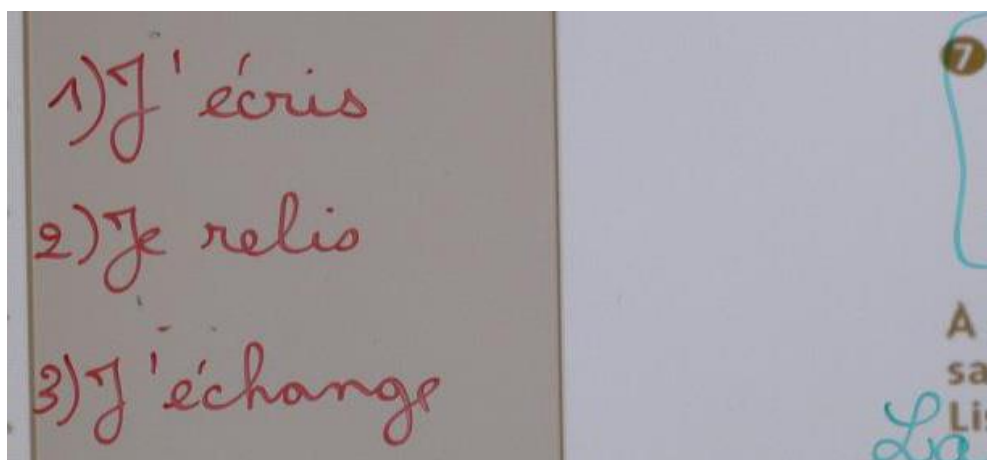 1) J'écris
2) Je relis
3) J'échange
7
A
La